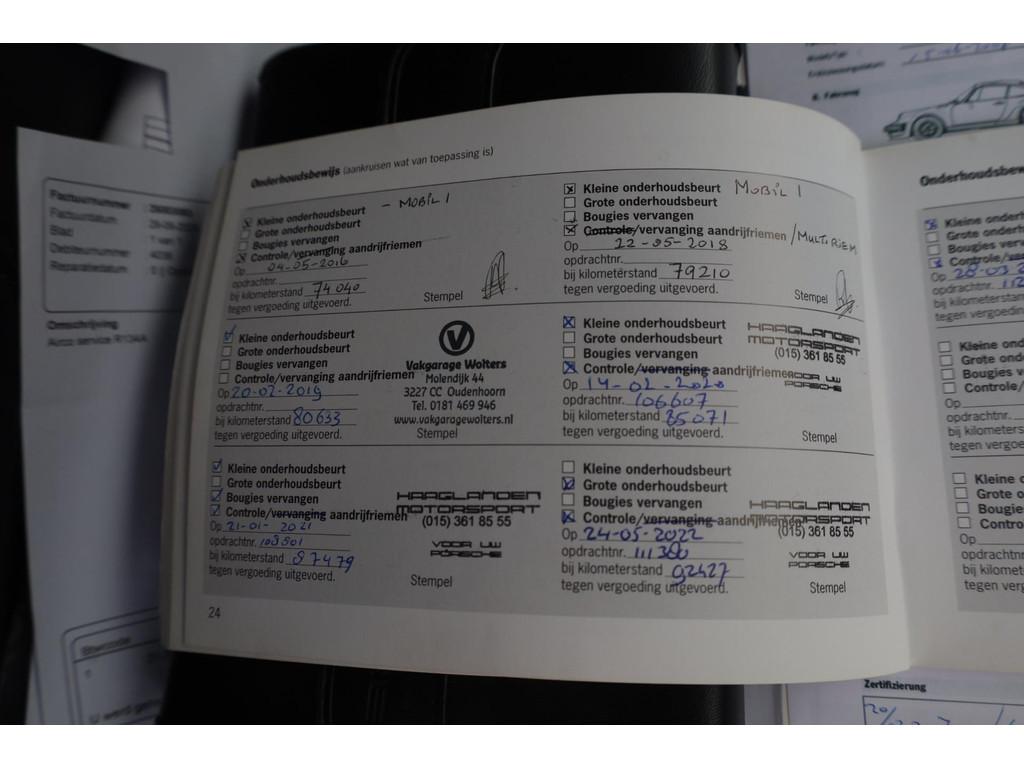 Factuurnummer
Factuurdatum
Blad
Debiteurnummer
Reparatiedatum
Omschrijving
Airco service R134A
Onderhoudsbewijs (aankruisen wat van toepassing is)
Kleine onderhoudsbeurt - MOBIL 1
Grote onderhoudsbeurt
Bougies vervangen
Controle/vervanging aandrijfriemen
Op 04-05-2016
opdrachtnr.
bij kilometerstand 74040
tegen vergoeding uitgevoerd.
Stempel
Kleine onderhoudsbeurt MOBIL 1
Grote onderhoudsbeurt
Bougies vervangen
Controle/vervanging aandrijfriemen /MULTIRIEM
Op 22-05-2018
opdrachtnr.
bij kilometerstand 79210
tegen vergoeding uitgevoerd.
Stempel
Kleine onderhoudsbeurt
Grote onderhoudsbeurt
Bougies vervangen
Controle/vervanging aandrijfriemen
Op 20-02-2019
opdrachtnr.
bij kilometerstand 80633
tegen vergoeding uitgevoerd.
Vakgarage Wolters
Molendijk 44
3227 CC Oudenhoorn
Tel. 0181 469 946
www.vakgaragewolters.nl
Stempel
Kleine onderhoudsbeurt
Grote onderhoudsbeurt
Bougies vervangen
Controle/vervanging aandrijfriemen
Op 14-02-2020
opdrachtnr. 106607
bij kilometerstand 85071
tegen vergoeding uitgevoerd.
HAAGLANDEN
MOTORSPORT
(015) 361 85 55
VOOR UW
PORSCHE
Stempel
Kleine onderhoudsbeurt
Grote onderhoudsbeurt
Bougies vervangen
Controle/vervanging aandrijfriemen
Op 21-01-2021
opdrachtnr. 108801
bij kilometerstand 87479
tegen vergoeding uitgevoerd.
HAAGLANDEN
MOTORSPORT
(015) 361 85 55
VOOR UW
PORSCHE
Stempel
Kleine onderhoudsbeurt
Grote onderhoudsbeurt
Bougies vervangen
Controle/vervanging aandrijfriemen
Op 24-05-2022
opdrachtnr. 111380
bij kilometerstand 92427
tegen vergoeding uitgevoerd.
HAAGLANDEN
MOTORSPORT
(015) 361 85 55
VOOR UW
PORSCHE
Stempel
24
Onderhoudsbew
Kleine onderh
Grote onderh
Bougies verv
Controle/
Op 28-03
opdrachtnr. 112
bij kilometersta
tegen vergoe
Kleine on
Grote ond
Bougies
Controle/
Op
opdrachtnr.
bij kilomet
tegen vergoe
Kleine o
Grote o
Bougies
Contro
Op
opdrachtn
bij kilomet
tegen ver
Zertifizierung